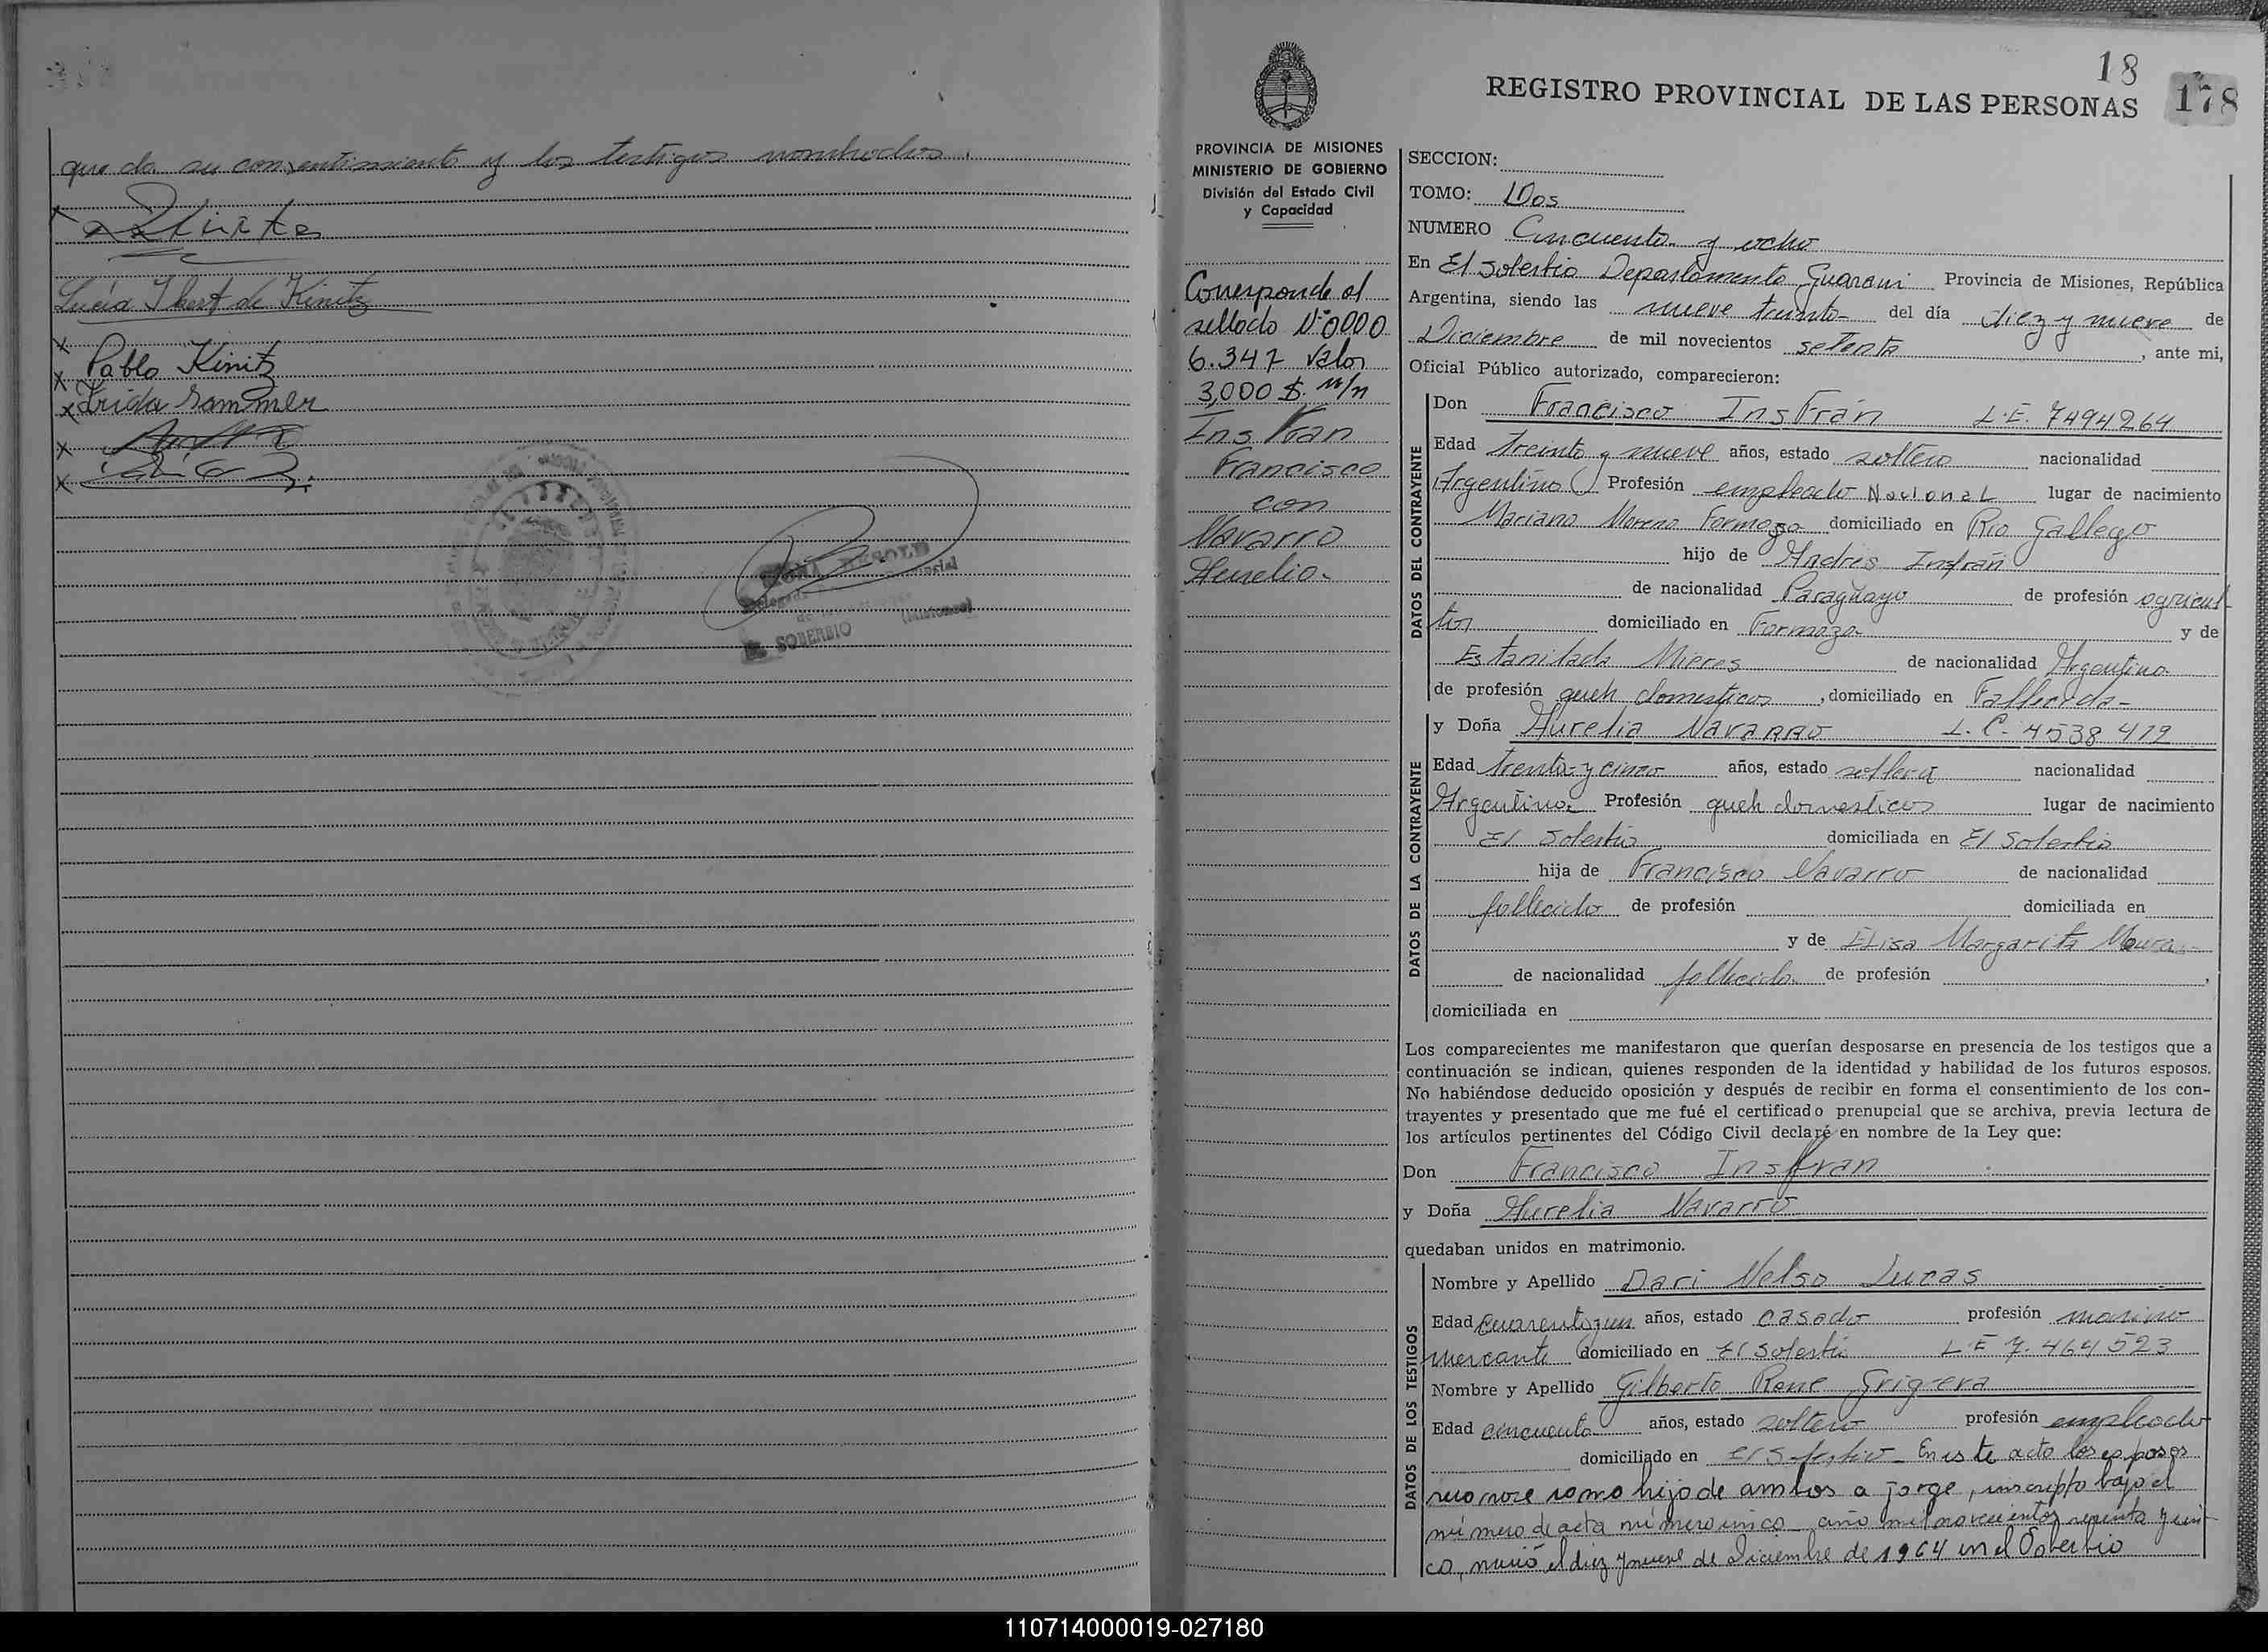 que da su consentimiento y los testigos nombrados.
Lucía Ibert de Kinitz
x Pablo Kinitz
x Frida Sommer
x
x
EL SOBERBIO
(Misiones)
18
178
REGISTRO PROVINCIAL DE LAS PERSONAS
PROVINCIA DE MISIONES
MINISTERIO DE GOBIERNO
División del Estado Civil
y Capacidad
Corresponde al
sellado Nº 0000
6.347 valor
3,000 $. m/n
Insfran
Francisco
con
Navarro
Aurelia-
SECCION:
TOMO: Dos
NUMERO Cincuenta y ocho
En El Soberbio Departamento Guarani Provincia de Misiones, República
Argentina, siendo las nueve treinta- del día diez y nueve de
Diciembre de mil novecientos setenta, ante mi,
Oficial Público autorizado, comparecieron:
DATOS DEL CONTRAYENTE
Don Francisco Insfrán L.E. 7494264
Edad treinta y nueve años, estado soltero nacionalidad
Argentino Profesión empleado Nacional lugar de nacimiento
Mariano Moreno Formoza domiciliado en Rio Gallego
hijo de Andres Insfrán
de nacionalidad Paraguayo de profesión agricul
tor domiciliado en Formoza- y de
Estanilada Mieres de nacionalidad Argentina
de profesión queh domesticos, domiciliado en Fallecida-
DATOS DE LA CONTRAYENTE
y Doña Aurelia Navarro L.C. 4538412
Edad trenta y cinco años, estado soltera nacionalidad
Argentina Profesión queh domesticos lugar de nacimiento
El Soberbio domiciliada en El Soberbio
hija de Francisco Navarro de nacionalidad
fallecido de profesión domiciliada en
y de Elisa Margarita Moura-
de nacionalidad fallecida de profesión ,
domiciliada en
Los comparecientes me manifestaron que querían desposarse en presencia de los testigos que a
continuación se indican, quienes responden de la identidad y habilidad de los futuros esposos.
No habiéndose deducido oposición y después de recibir en forma el consentimiento de los con-
trayentes y presentado que me fué el certificado prenupcial que se archiva, previa lectura de
los artículos pertinentes del Código Civil declaré en nombre de la Ley que:
Don Francisco Insfran
y Doña Aurelia Navarro
quedaban unidos en matrimonio.
DATOS DE LOS TESTIGOS
Nombre y Apellido Dari Nelso Lucas
Edad cuarentayun años, estado casado profesión marino
mercante domiciliado en El Soberbio L.E 7.464523
Nombre y Apellido Gilberto Rene Grigera
Edad cincuenta años, estado soltero profesión empleado
domiciliado en El Soberbio- En este acto los esposos
reconoce como hijo de ambos a Jorge, inscripto bajo el
número de acta número cinco año mil novecientos sesenta y cin-
co, nació el diez y nueve de Diciembre de 1964 en el Soberbio
110714000019-027180